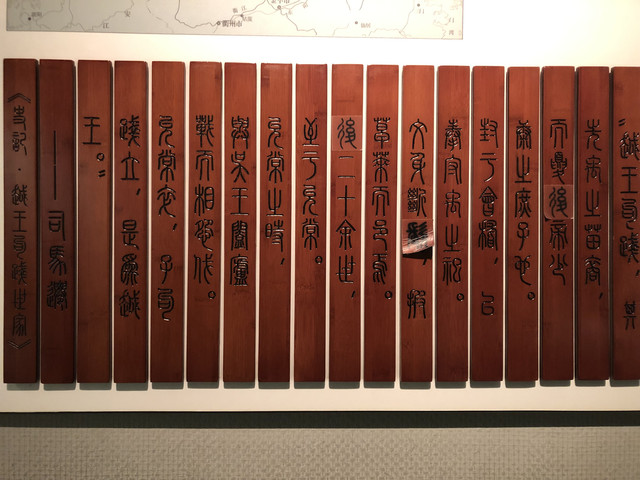 安
江
衢州市
“越王句踐，其
先禹之苗裔，
而夏後帝少
康之庶子也。
封于會稽，以
奉守禹之祀。
文身斷髮，披
草萊而邑焉。
後二十余世，
至于允常。
允常之時，
與吳王闔廬
戰而相怨伐。
允常卒，子句
踐立，是爲越
王。”
——司馬遷
《史記·越王句踐世家》